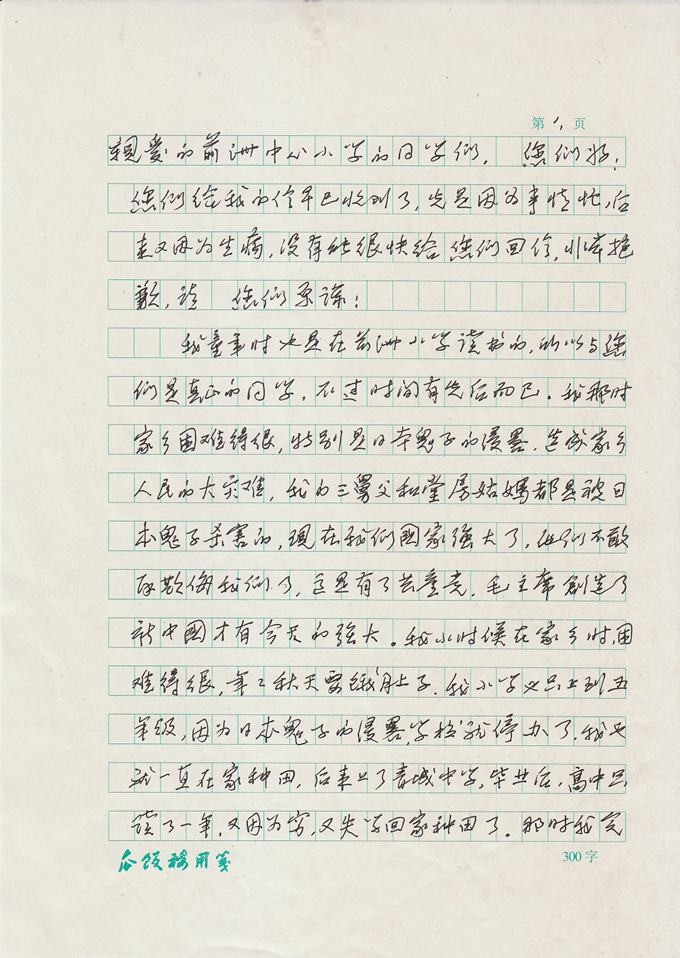 第 1 页
親爱的前洲中心小学的同学们, 您们好!
您们给我的信早已收到了, 先是因为事情忙, 后
来又因为生病, 没有能很快给 您们回信, 非常抱
歉, 请 您们原谅!
我童年时也是在前洲小学读书的, 所以与您
们是真正的同学, 不过时间有先后而已. 我那时
家乡困难得很, 特别是日本鬼子的侵畧, 造成家乡
人民的大灾难, 我的三舅父和堂房姑媽都是被日
本鬼子杀害的, 現在我们國家強大了, 他们不敢
再欺侮我们了, 这是有了共產党, 毛主席創造了
新中國才有今天的強大. 我小时候在家乡时, 困
难得很, 每年秋天要饿肚子. 我小学也只上到五
年级, 因为日本鬼子的侵畧, 学校就停办了. 我也
就一直在家种田, 后来上了青城中学, 毕业后, 高中只
读了一年, 又因为穷, 又失学回家种田了. 那时我完
瓜饭楼用箋
300 字